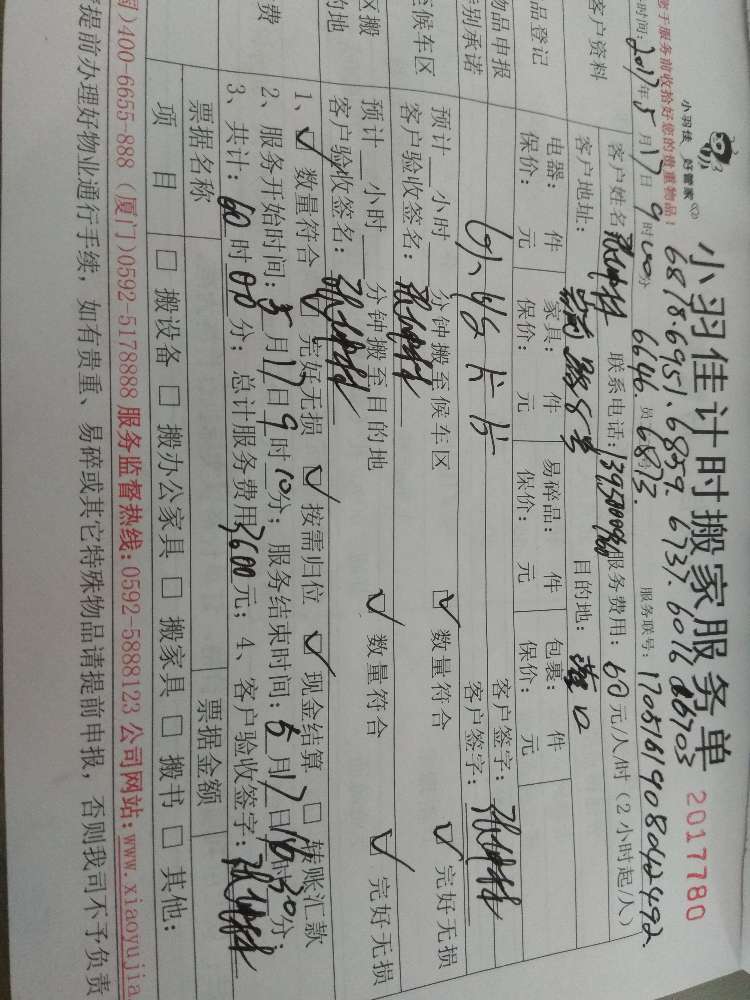 小羽侠 好管家
小羽佳计时搬家服务单 2017780
服务前收拾好您的贵重物品!
6878.6951.6859.6737.6016 6703
时间:2017年5月17日9时00分 6646. 6873. 服务联号:1705161908042492
客户资料 客户姓名 联系电话: 服务费用:60元/人/时(2小时起/八)
客户地址: 路8号 目的地:
品登记 电器: 件 家具: 件 易碎品: 件 包裹: 件
保价: 元 保价: 元 保价: 元 保价: 元
物品申报 客户签字:
别承诺 客户签字:
候车区 预计__小时__分钟搬至候车区 ☑ 数量符合 ☑ 完好无损
客户验收签名:
区搬 预计__小时__分钟搬至目的地 ☑ 数量符合 ☑ 完好无损
的地 客户验收签名:
1、☑ 数量符合 ☑ 完好无损 ☑ 按需归位 ☑ 现金结算 □ 转账汇款
费 2、服务开始时间:5月17日9时10分;服务结束时间:5月17日 时30分;
3、共计:60时00分;总计服务费用3600元;4、客户验收签字:
票据名称 票据金额
项 目 □ 搬设备 □ 搬办公家具 □ 搬家具 □ 搬书 □ 其他:
)400-6655-888 (厦门)0592-5178888 服务监督热线:0592-5888123 公司网站:www.xiaoyujia
提前办理好物业通行手续,如有贵重、易碎或其它特殊物品请提前申报,否则我司不予负责